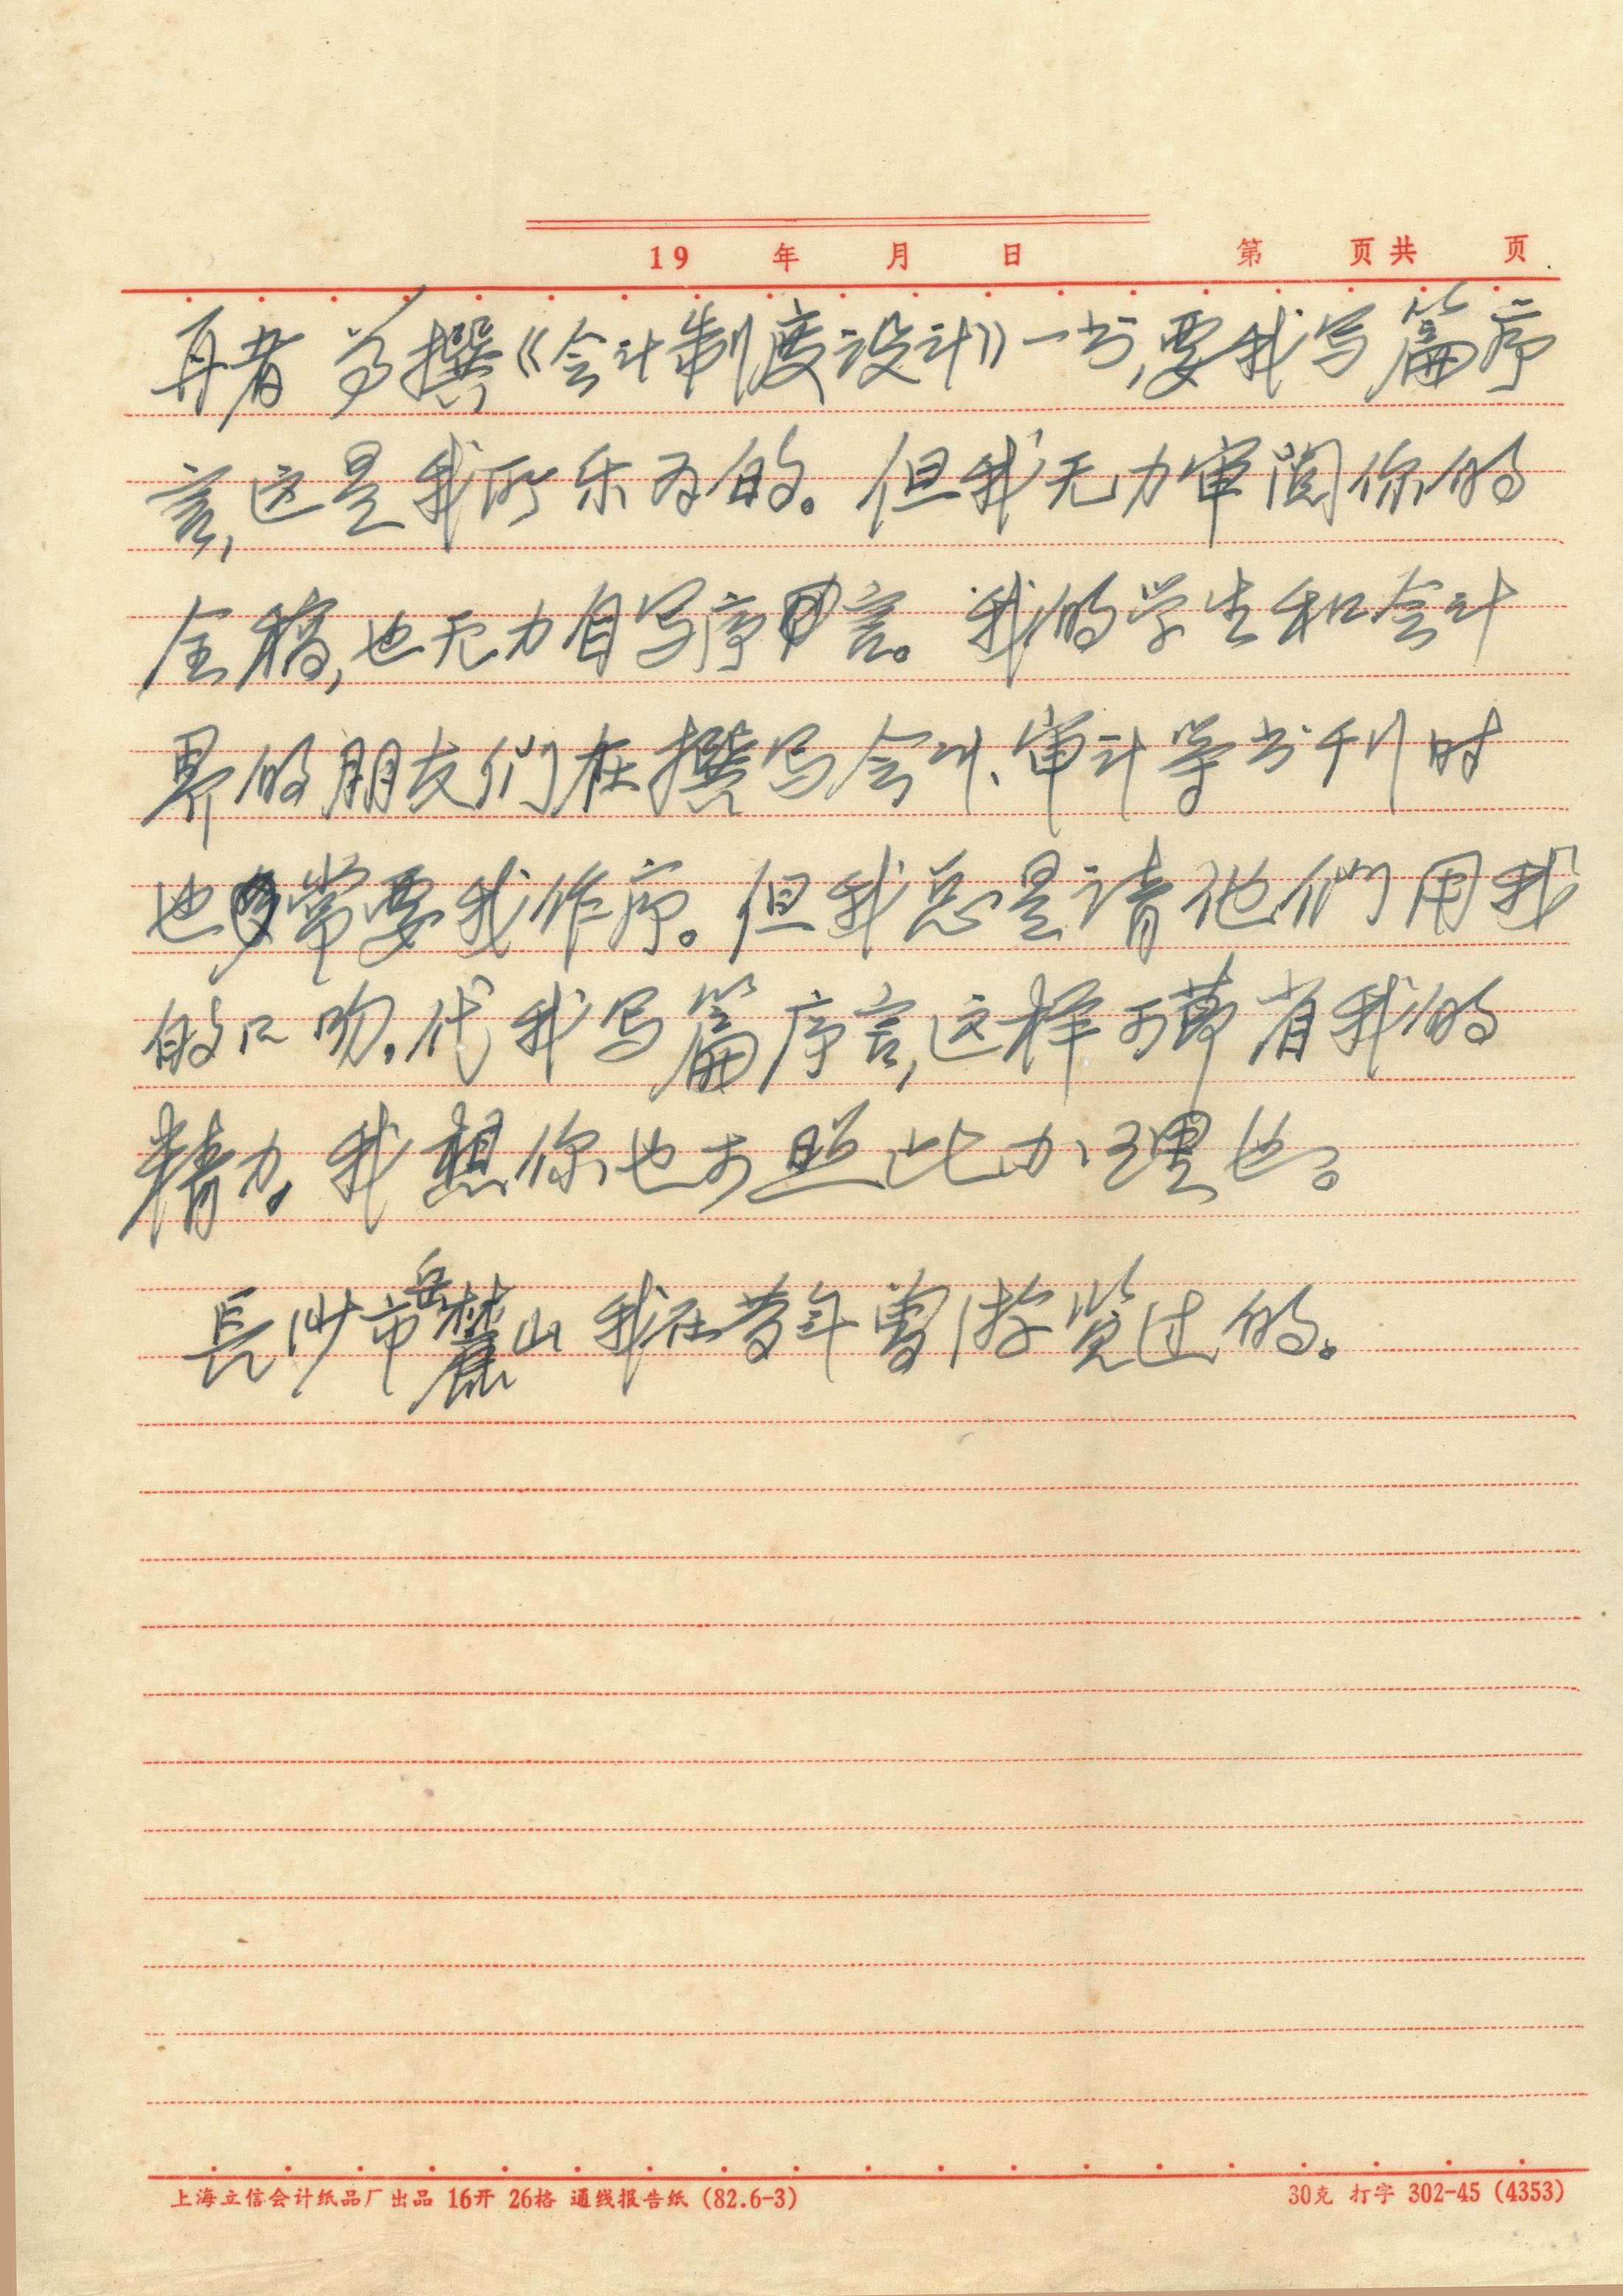 19 年 月 日 第 页共 页
再者 为撰《会计制度设计》一书,要我写篇序
言,这是我所乐为的。但我无力审阅你的
全稿,也无力自写序言。我的学生和会计
界的朋友们在撰写会计、审计等书刊时
也常要我作序。但我总是请他们用我
的口吻,代我写篇序言,这样可节省我的
精力,我想你也可照此办理也。
長沙市岳麓山我在昔年曾游览过的。
上海立信会计纸品厂出品 16开 26格 通线报告纸 (82.6-3) 30克 打字 302-45 (4353)